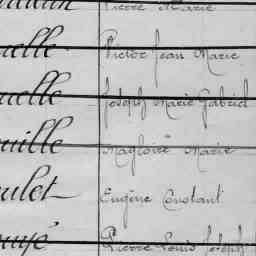 Pierre Marie
uelle Victor Jean Marie
uelle Joseph Marie Gabriel
uille Magloire Marie
ulet Eugène Constant
uyé Pierre Louis Joseph